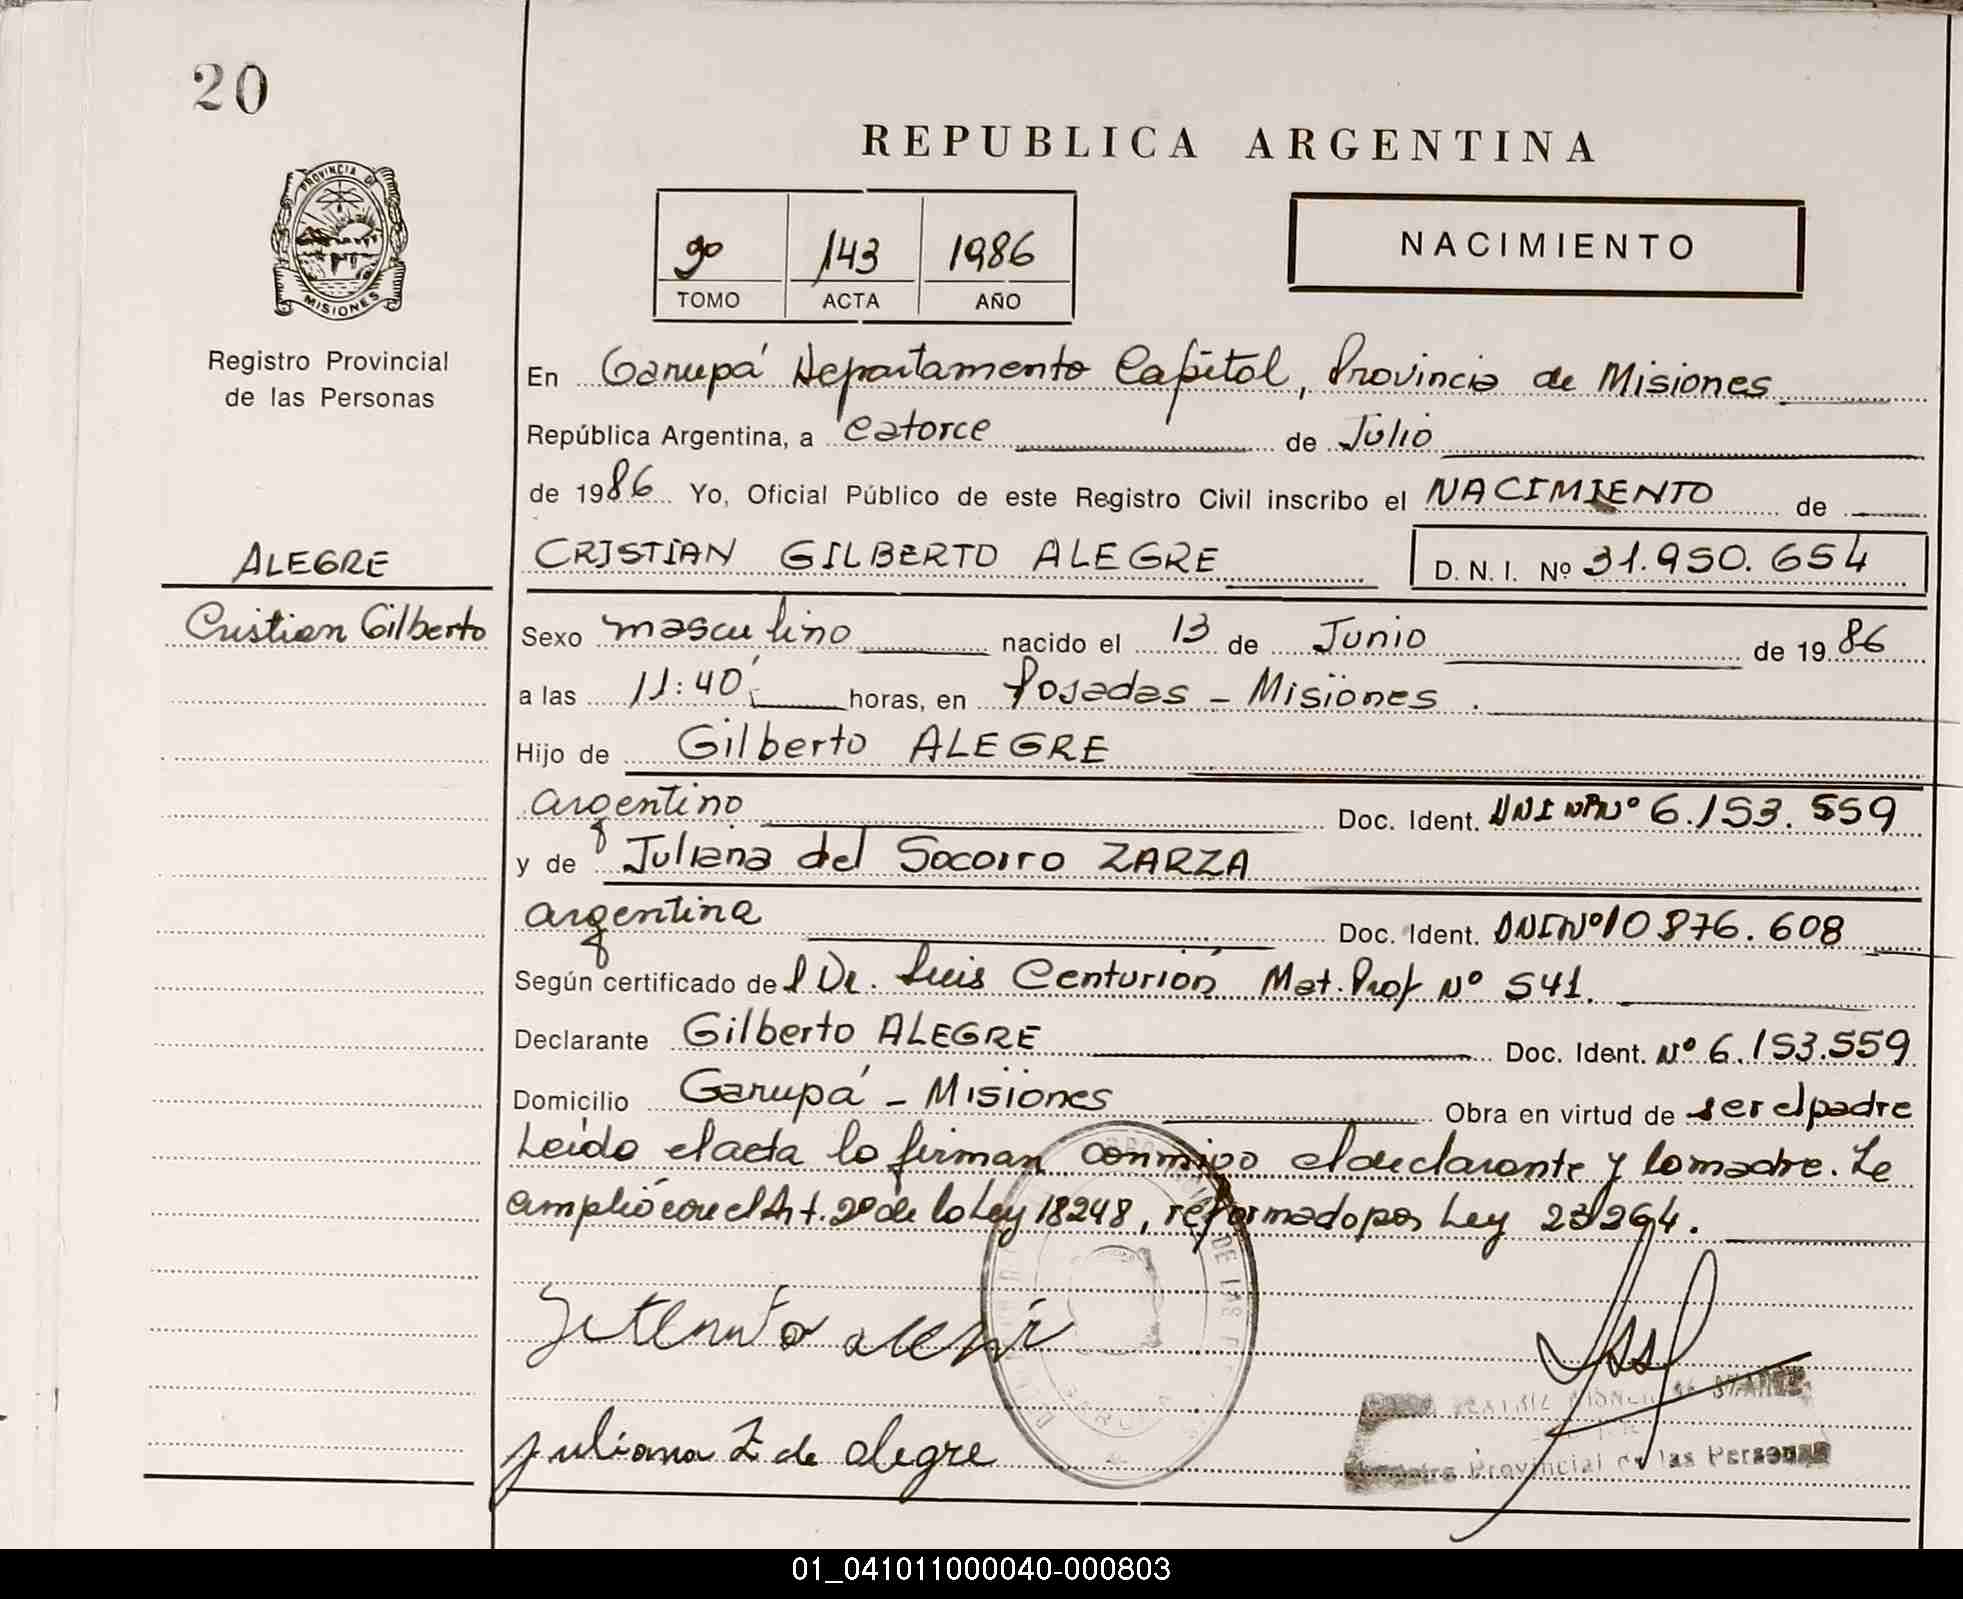 20
REPUBLICA ARGENTINA
PROVINCIA DE
MISIONES
Registro Provincial
de las Personas
143 1986
TOMO ACTA AÑO
NACIMIENTO
En Garupá Departamento Capital, Provincia de Misiones
República Argentina, a catorce de Julio
de 1986 Yo, Oficial Público de este Registro Civil inscribo el NACIMIENTO de
ALEGRE
Cristian Gilberto
CRISTIAN GILBERTO ALEGRE D. N. I. Nº 31.950.654
Sexo masculino nacido el 13 de Junio de 1986
a las 11:40 horas, en Posadas - Misiones.
Hijo de Gilberto ALEGRE
argentino Doc. Ident. Nº 6.153.559
y de Juliana del Socorro ZARZA
argentina Doc. Ident. DNI Nº 10 876.608
Según certificado del Dr. Luis Centurión Mat. Prof Nº 541.
Declarante Gilberto ALEGRE Doc. Ident. Nº 6.153.559
Domicilio Garupá - Misiones Obra en virtud de ser el padre
Leído el acta lo firman conmigo el declarante y la madre. Se
cumplió con el Art. 2º de la Ley 18248, reformado por Ley 23264.
Juliana Z de Alegre
Registro Provincial de las Personas
01_041011000040-000803